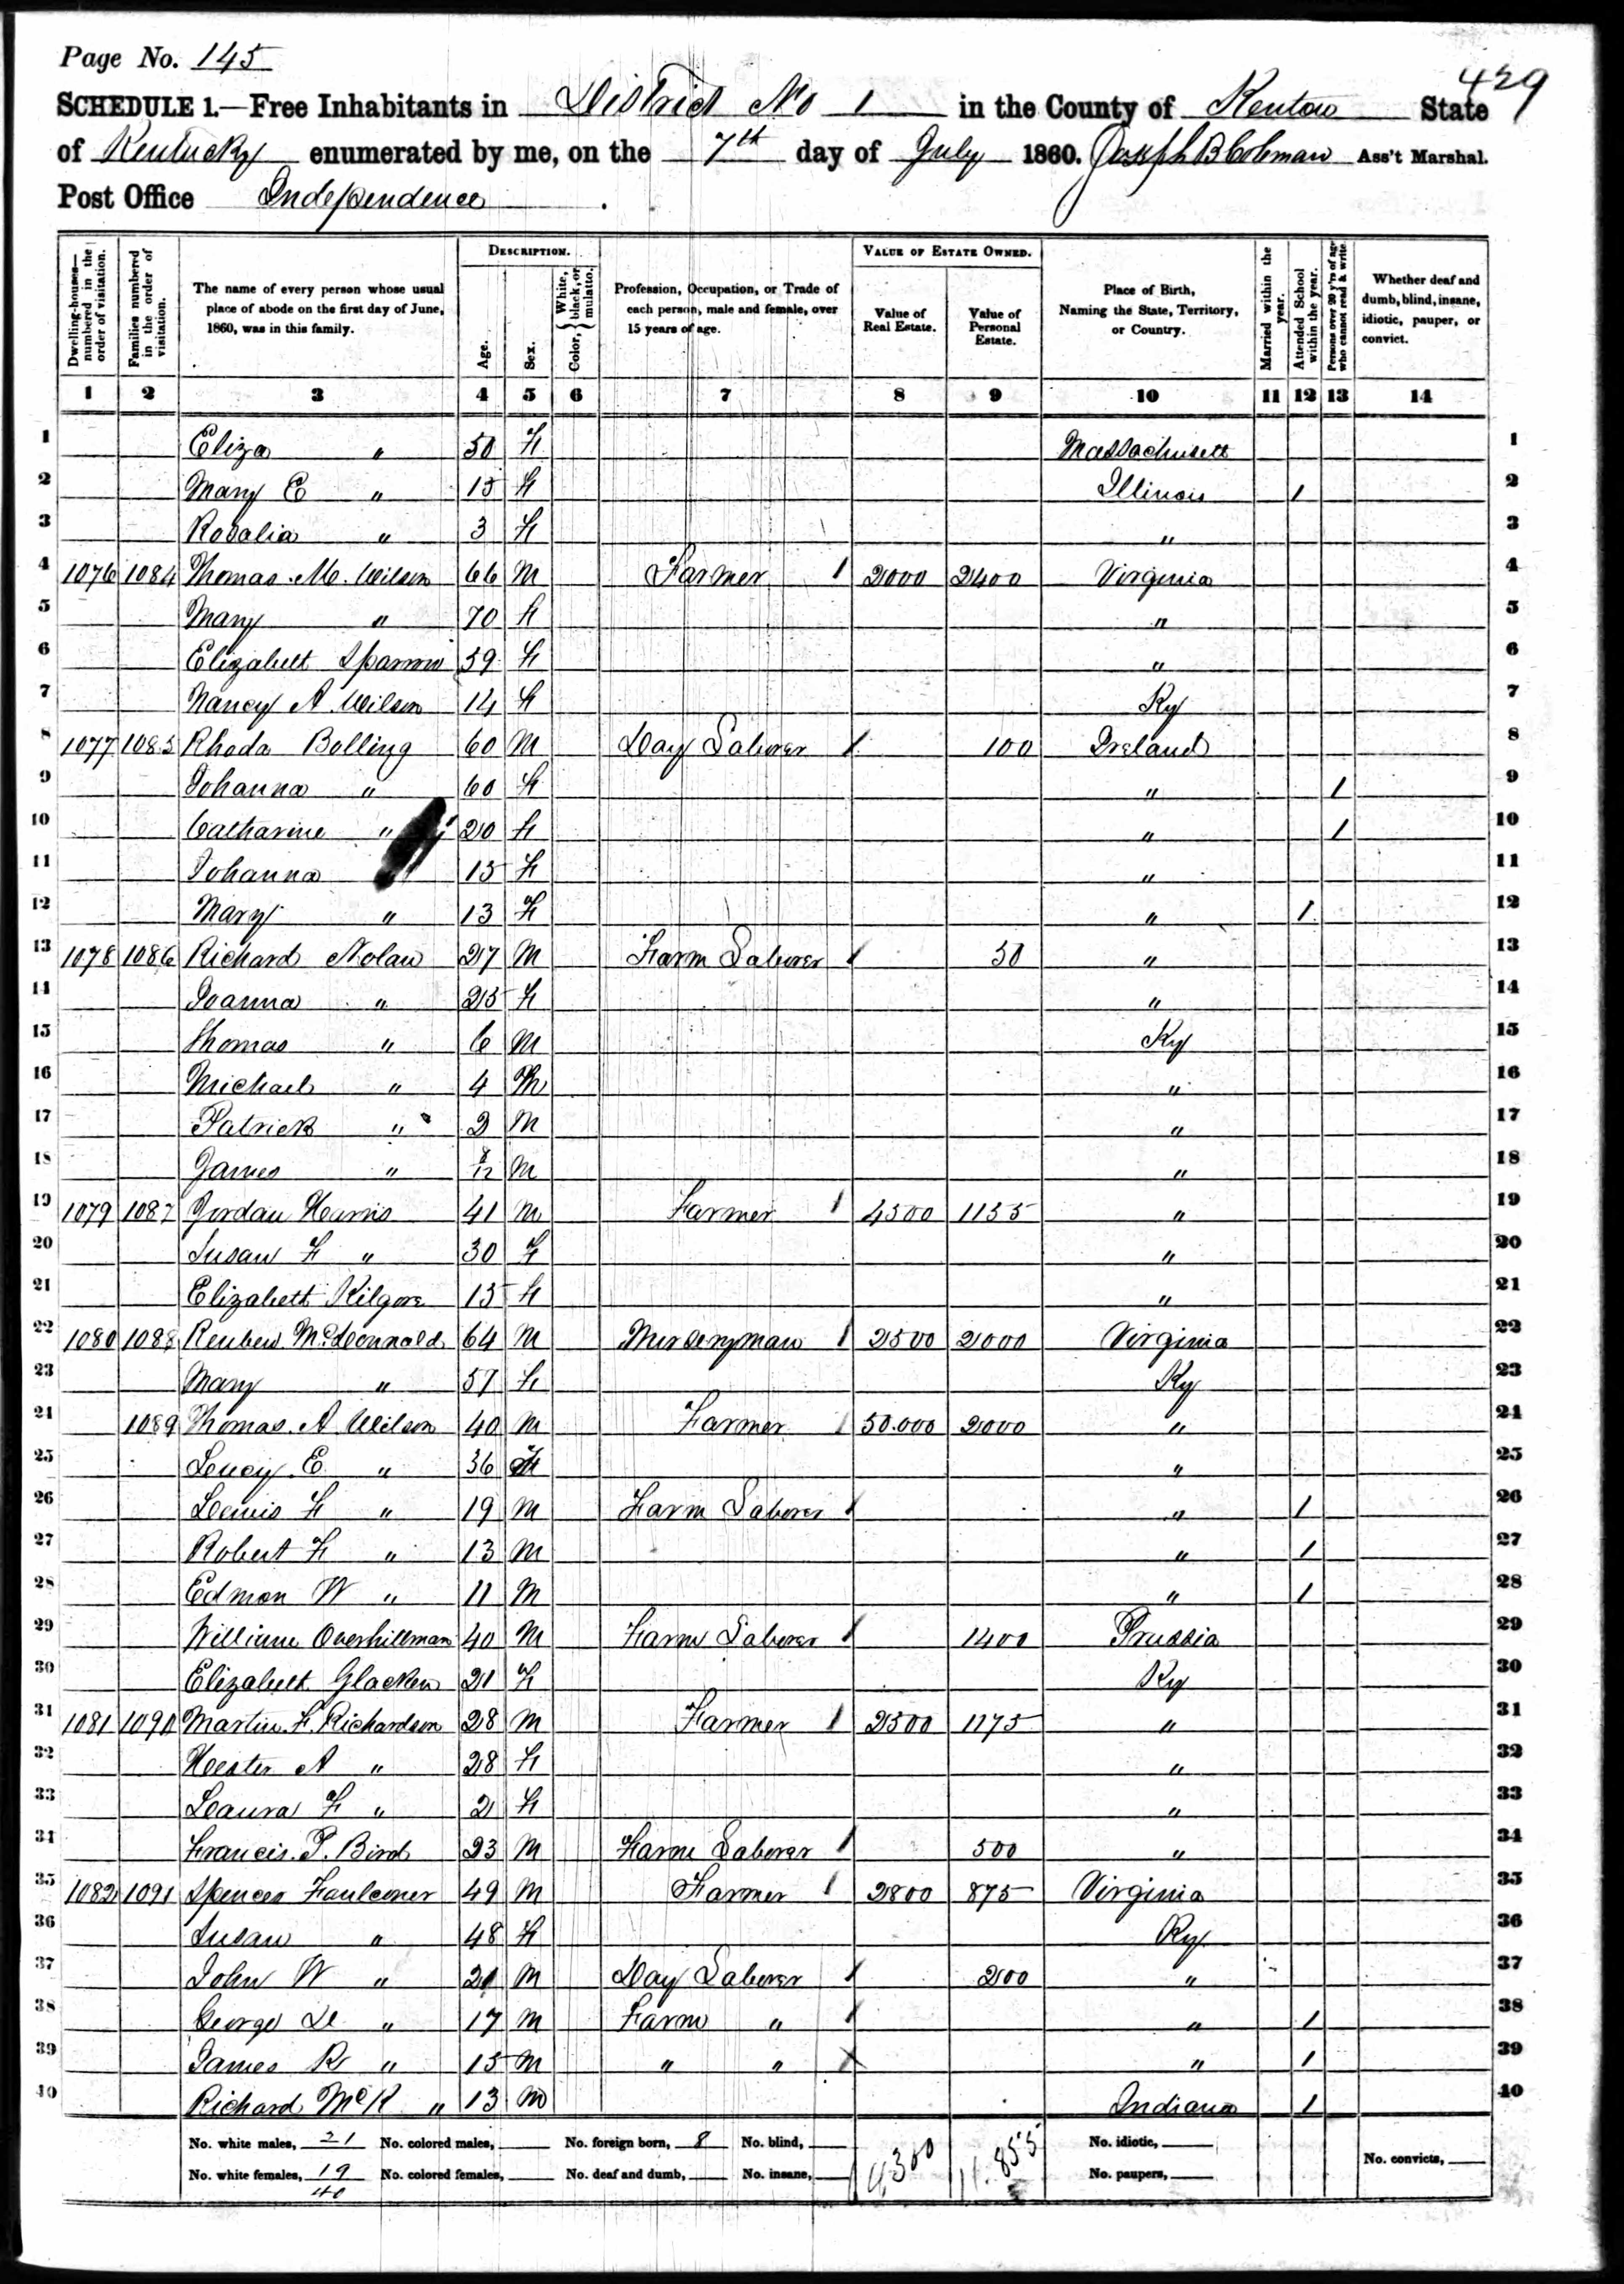 Page No. 145
429
SCHEDULE 1.—Free Inhabitants in District No 1 in the County of Kenton State
of Kentucky enumerated by me, on the 7th day of July 1860. Joseph B Coleman Ass't Marshal.
Post Office Independence
Dwelling-houses—numbered in the order of visitation.
Families numbered in the order of visitation.
The name of every person whose usual place of abode on the first day of June, 1860, was in this family.
DESCRIPTION.
Age.
Sex.
Color, White, black, or mulatto.
Profession, Occupation, or Trade of each person, male and female, over 15 years of age.
VALUE OF ESTATE OWNED.
Value of Real Estate.
Value of Personal Estate.
Place of Birth, Naming the State, Territory, or Country.
Married within the year.
Attended School within the year.
Persons over 20 y'rs of age who cannot read & write.
Whether deaf and dumb, blind, insane, idiotic, pauper, or convict.
1 2 3 4 5 6 7 8 9 10 11 12 13 14
1 Eliza " 50 F Massachusett 1
2 Mary E " 15 F Illinois 1 2
3 Rosalia " 3 F " 3
4 1076 1084 Thomas M. Wilson 66 M Farmer 1 2000 2400 Virginia 4
5 Mary " 70 F " 5
6 Elizabeth Sparrow 59 F " 6
7 Nancy A Wilson 14 F Ky 7
8 1077 1085 Rhoda Bolling 60 M Day Laborer 1 100 Ireland 8
9 Johanna " 60 F " 1 9
10 Catharine " 20 F " 1 10
11 Johanna 15 F " 11
12 Mary " 13 F " 1 12
13 1078 1086 Richard Nolan 27 M Farm Laborer 1 50 " 13
14 Joanna " 25 F " 14
15 Thomas " 6 M Ky 15
16 Michael " 4 M " 16
17 Patrick " 2 M " 17
18 James " 8/12 M " 18
19 1079 1087 Jordan Harris 41 M Farmer 1 4500 1155 " 19
20 Susan F " 30 F " 20
21 Elizabeth Kilgore 15 F " 21
22 1080 1088 Reuben McDonnald 64 M Nurseryman 1 2500 2000 Virginia 22
23 Mary " 57 F Ky 23
24 1089 Thomas A Wilson 40 M Farmer 1 50.000 2000 " 24
25 Lucy E " 36 F " 25
26 Lewis F " 19 M Farm Laborer 1 " 1 26
27 Robert F " 13 M " 1 27
28 Edmon W " 11 M " 1 28
29 William Overhillman 40 M Farm Laborer 1 1400 Prussia 29
30 Elizabeth Glacken 21 F Ky 30
31 1081 1090 Martin F. Richardson 28 M Farmer 1 2500 1175 " 31
32 Hester A " 28 F " 32
33 Leaura F " 2 F " 33
34 Francis P. Bird 23 M Farm Laborer 1 500 " 34
35 1082 1091 Spencer Faulconer 49 M Farmer 1 2800 875 Virginia 35
36 Susan " 48 F Ky 36
37 John W " 21 M Day Laborer 1 200 " 37
38 George " 17 M Farm " 1 " 1 38
39 James R " 15 M " " " 1 39
40 Richard McK " 13 M Indiana 1 40
No. white males, 21 No. colored males, No. foreign born, 8 No. blind, No. idiotic, No. convicts,
No. white females, 19 No. colored females, No. deaf and dumb, No. insane, 11.855 No. paupers,
40